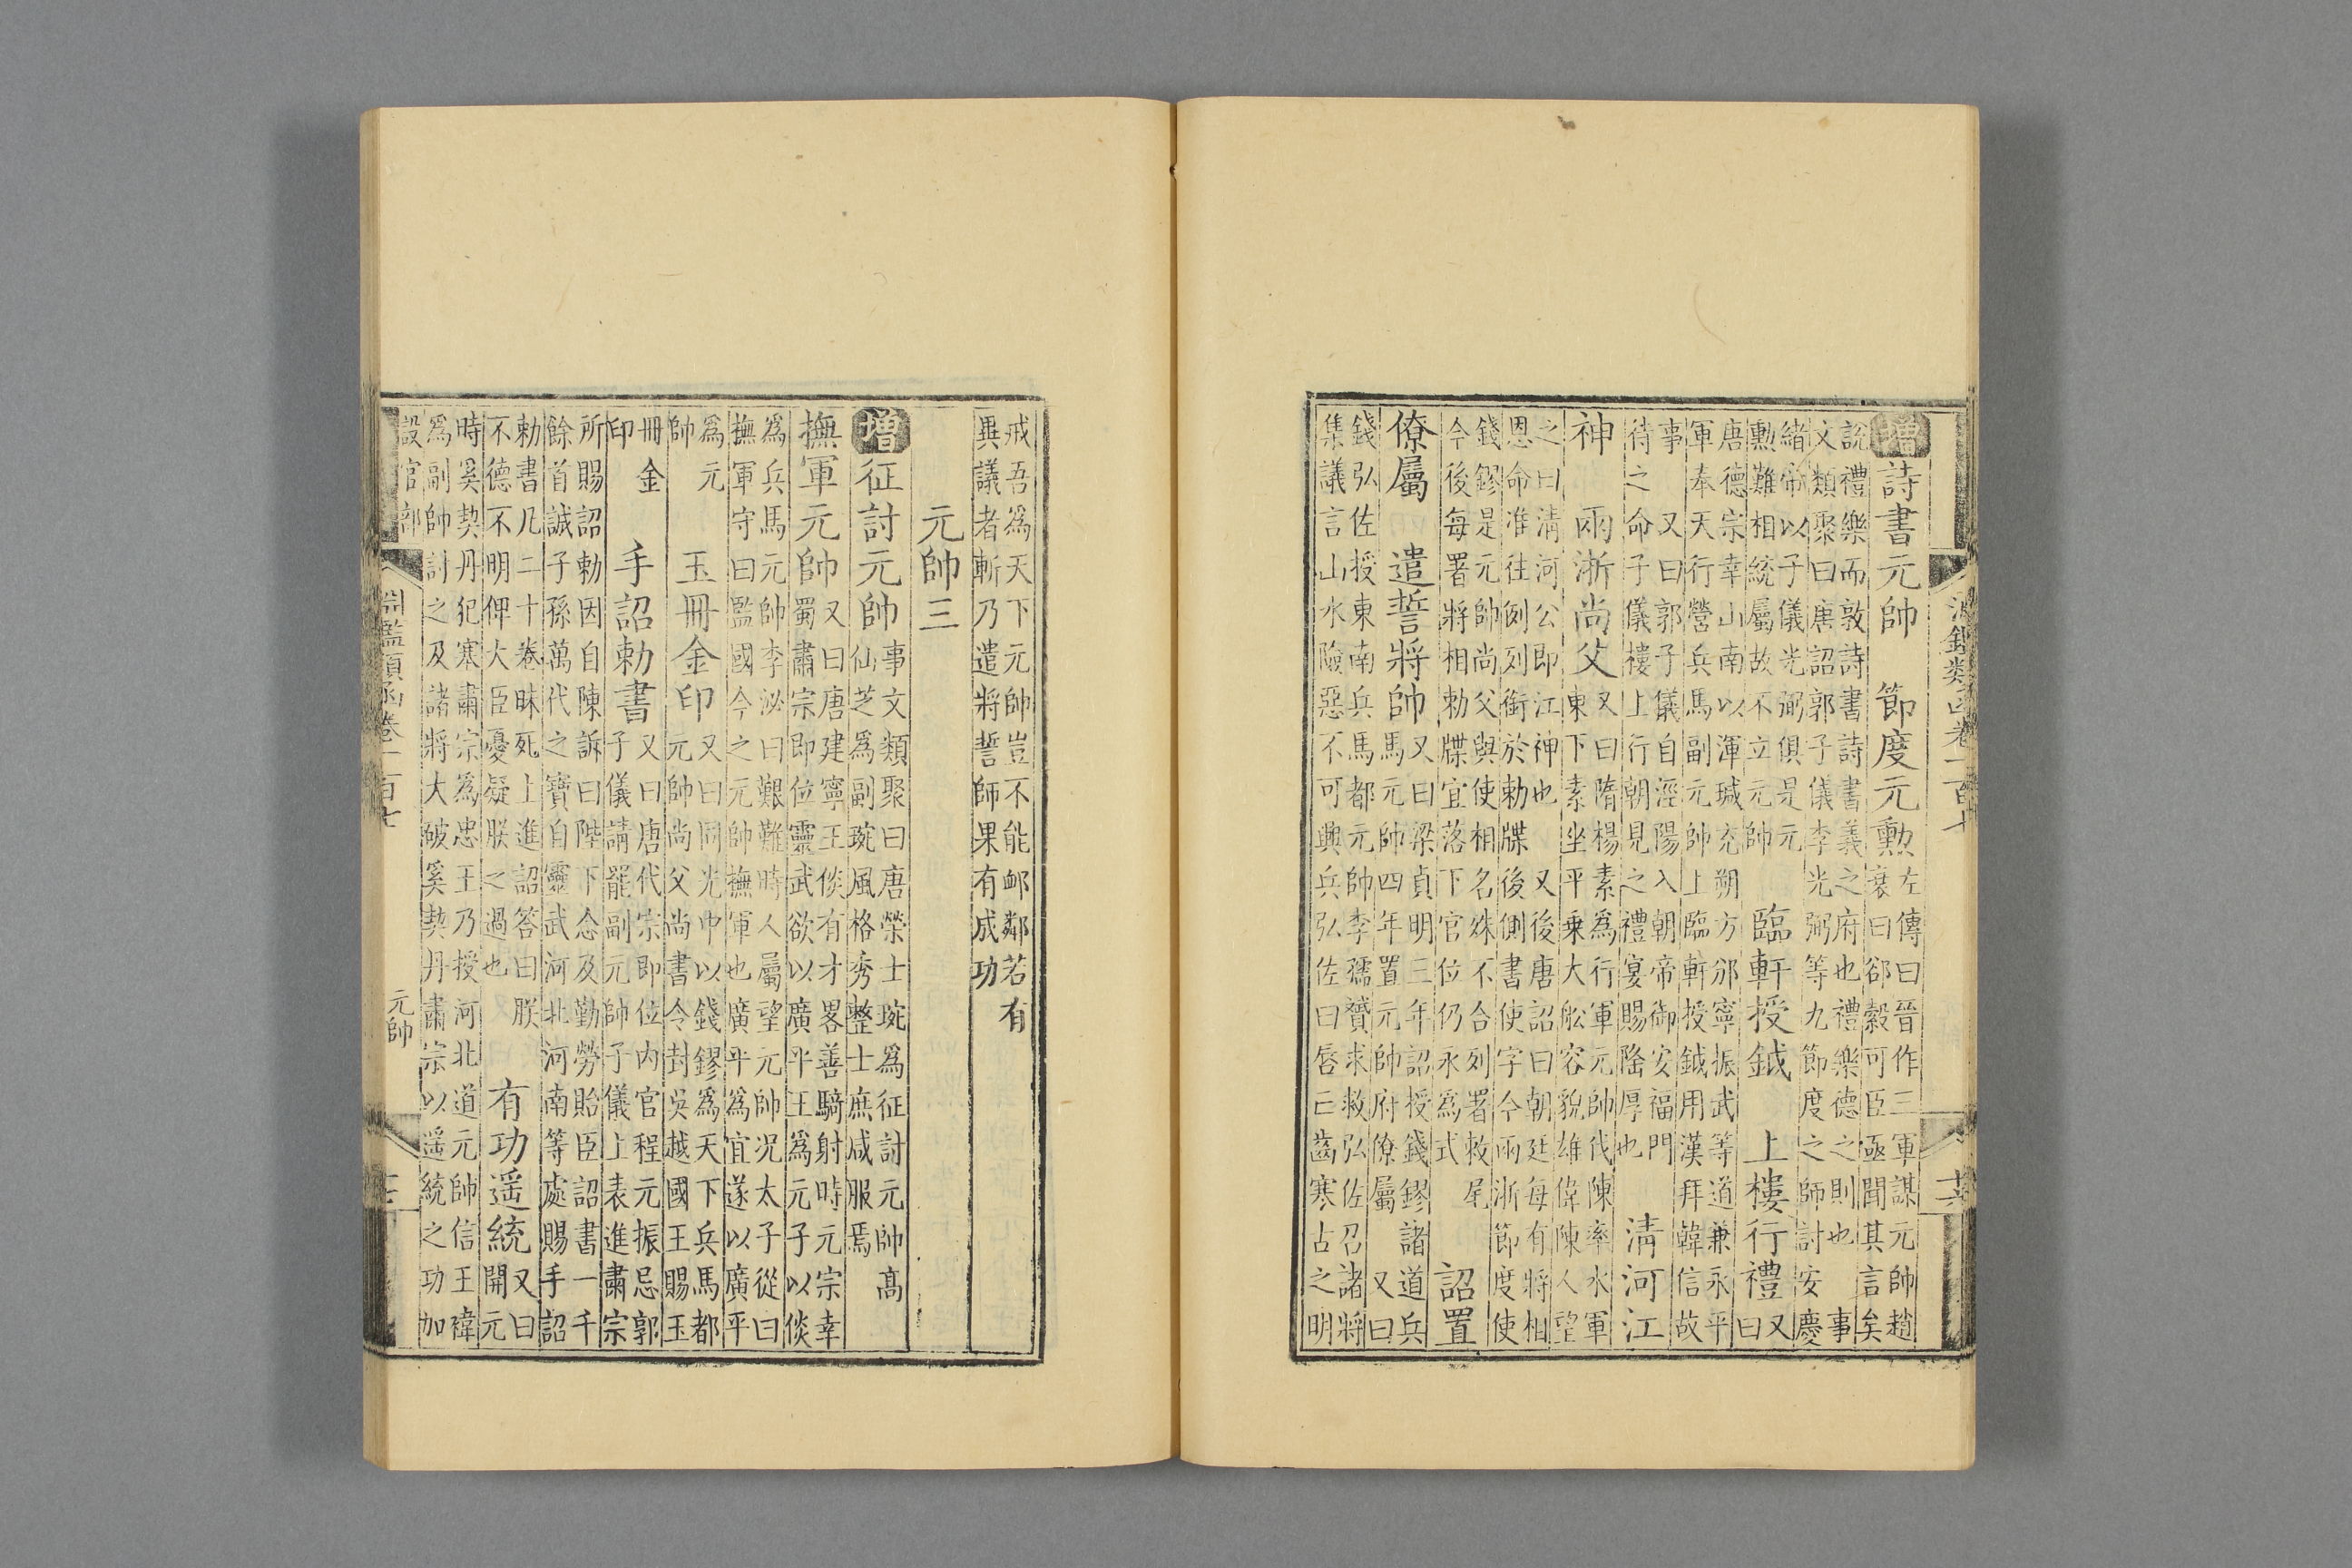 淵鑑類函卷一百七
十六
增詩書元帥 節度元勲
左傳曰晉作三軍謀元帥趙
衰曰郤縠可臣亟聞其言矣
說禮樂而敦詩書詩書義之府也禮樂德之則也 事
文類聚曰唐詔郭子儀李光弼等九節度之師討安慶
緒帝以子儀光弼俱是元
勲難相統屬故不立元帥
臨軒授鉞 上樓行禮
又
曰
唐德宗幸山南以渾瑊充朔方邠寧振武等道兼永平
軍奉天行營兵馬副元帥上臨軒授鉞用漢拜韓信故
事 又曰郭子儀自涇陽入朝帝御安福門
待之命子儀樓上行朝見之禮宴賜隆厚也
清河江
神 兩浙尚父
又曰隋楊素爲行軍元帥伐陳率水軍
東下素坐平乗大舩容貌雄偉陳人望
之曰清河公即江神也 又後唐詔曰朝廷每有將相
恩命准往例列銜於勅牒後側書使字今兩浙節度使
錢鏐是元帥尚父與使相名殊不合列署敕尾
今後每署將相勅牒宜落下官位仍永爲式
詔置
僚屬 遣誓將帥
又曰梁貞明三年詔授錢鏐諸道兵
馬元帥四年置元帥府僚屬 又曰
錢弘佐授東南兵馬都元帥李孺贇求救弘佐召諸將
集議言山水險惡不可興兵弘佐曰唇亡齒寒古之明
戒吾爲天下元帥豈不能䘏鄰若有
異議者斬乃遣將誓師果有成功
元帥三
增征討元帥
事文類聚曰唐榮士琬爲征討元帥高
仙芝爲副琬風格秀整士庶咸服焉
撫軍元帥
又曰唐建寧王倓有才畧善騎射時元宗幸
蜀肅宗即位靈武欲以廣平王爲元子以倓
爲兵馬元帥李泌曰艱難時人屬望元帥况太子從曰
撫軍守曰監國今之元帥撫軍也廣平爲宜遂以廣平
爲元
帥
玉冊金印
又曰同光中以錢鏐爲天下兵馬都
元帥尚父尚書令封吳越國王賜玉
冊金
印
手詔勅書
又曰唐代宗即位内官程元振忌郭
子儀請罷副元帥子儀上表進肅宗
所賜詔勅因自陳訴曰陛下念及勤勞貽臣詔書一千
餘首誠子孫萬代之寶自靈武河北河南等處賜手詔
勅書凡二十卷昧死上進詔答曰朕
不德不明俾大臣憂疑朕之過也
有功遥統
又曰
開元
時奚契丹犯塞肅宗爲忠王乃授河北道元帥信王禕
爲副帥討之及諸將大破奚契丹肅宗以遥統之功加
設官部
淵鑑類函卷一百七
元帥